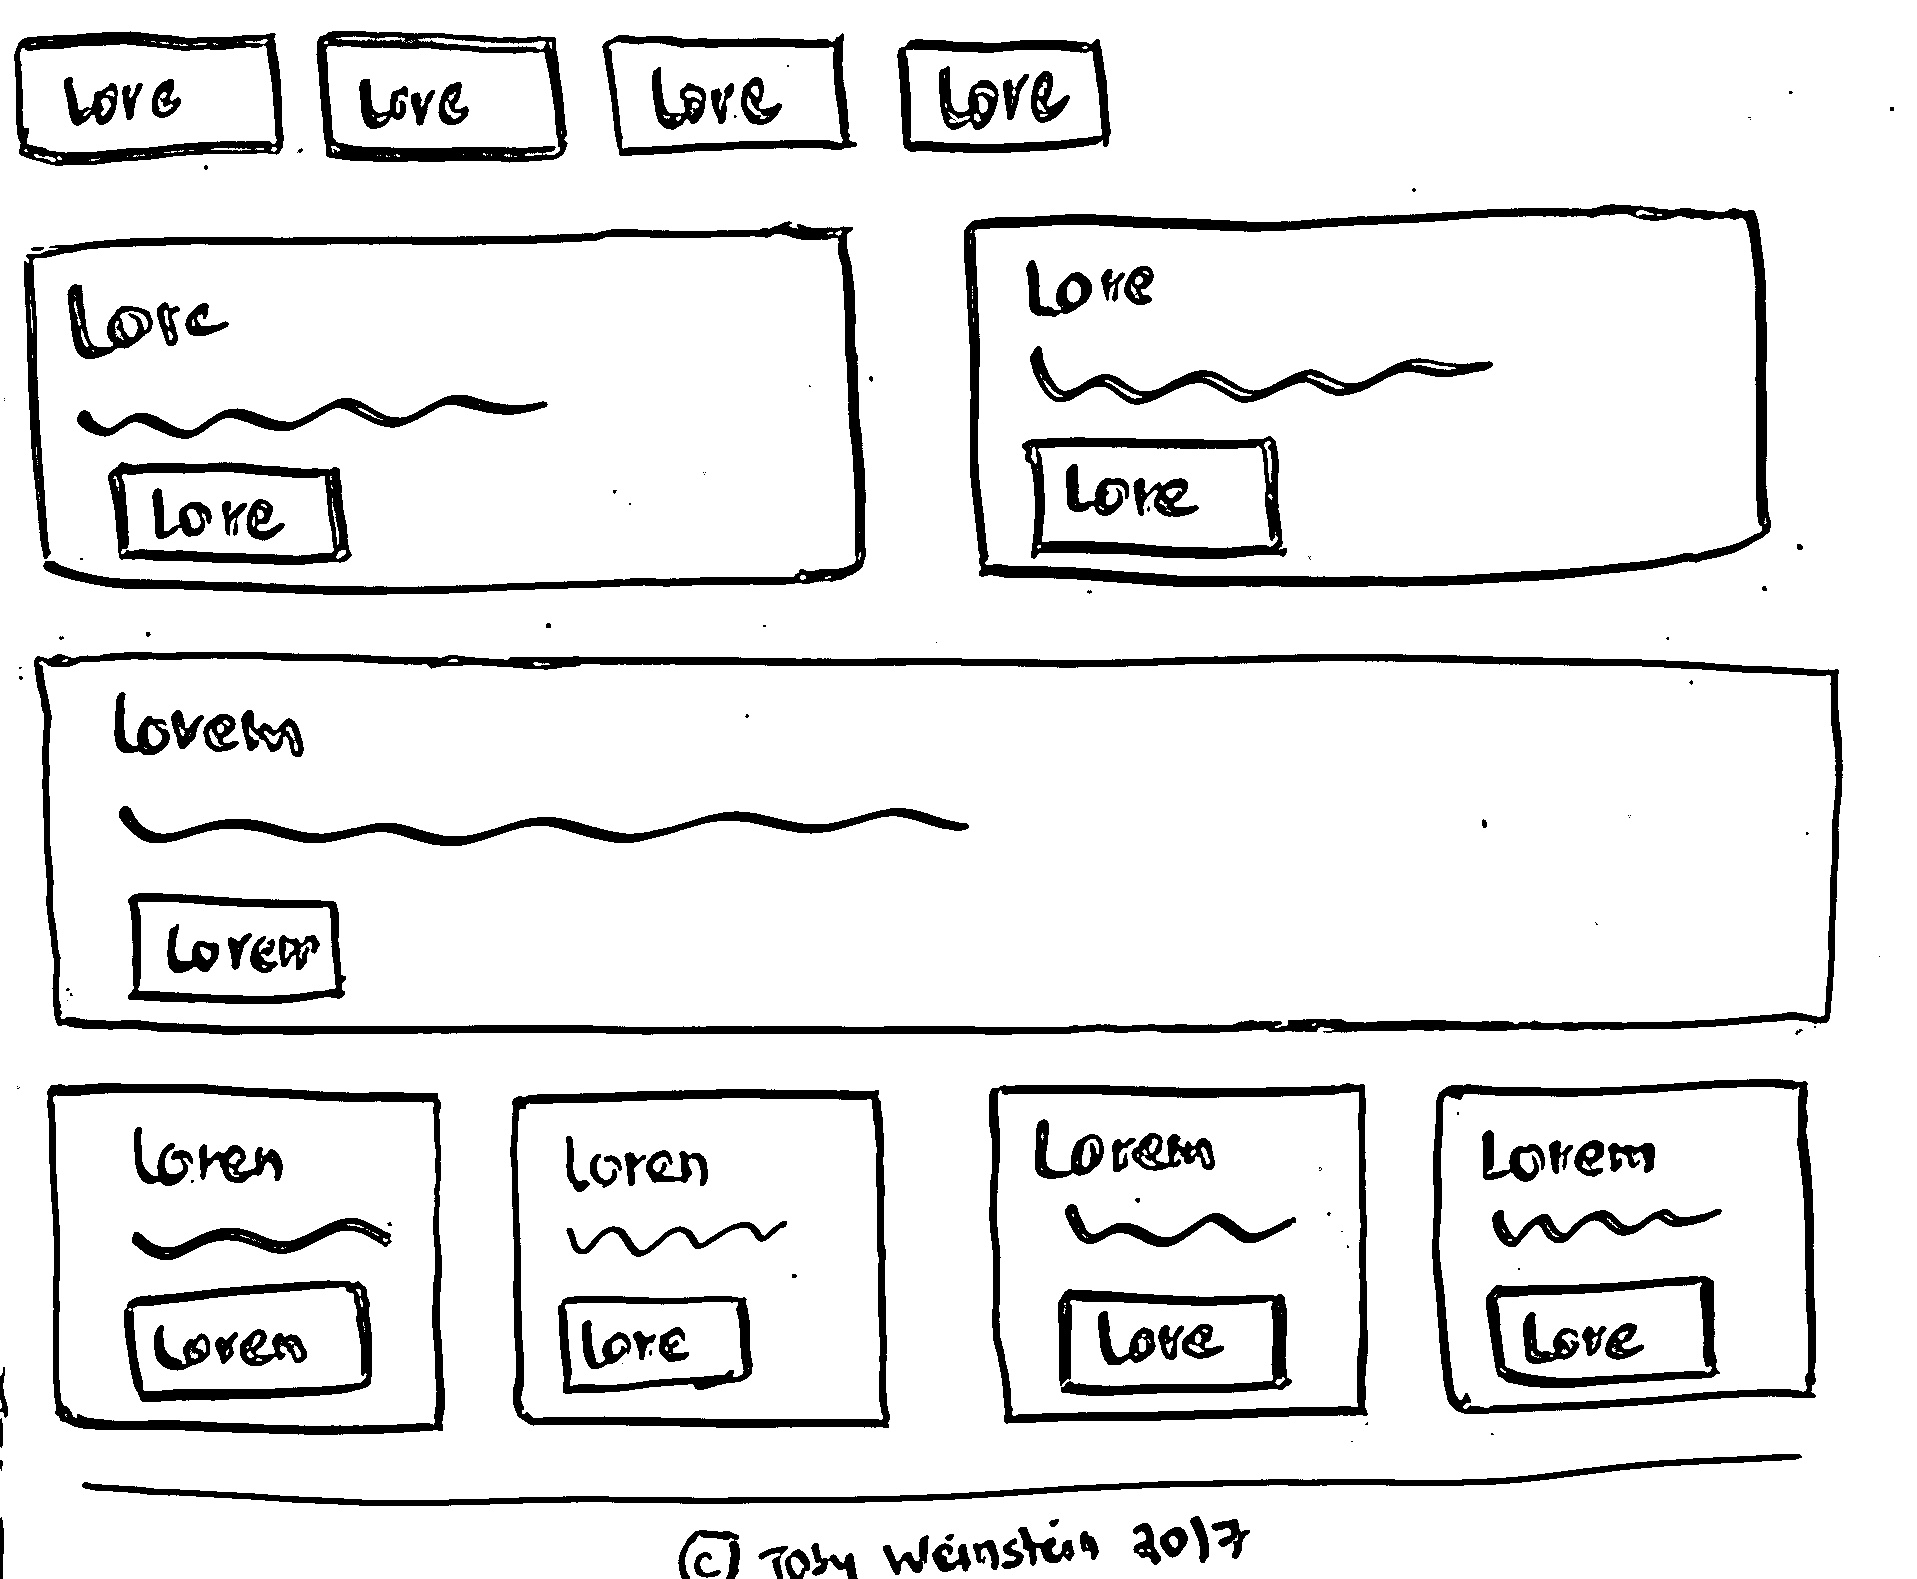 Love Love Love Love
Lore
Lore
Lore
Lore
Lorem
Lorem
Loren Loren Lorem Lorem
Loren Lore Love Lore
© Toby Weinstein 2017